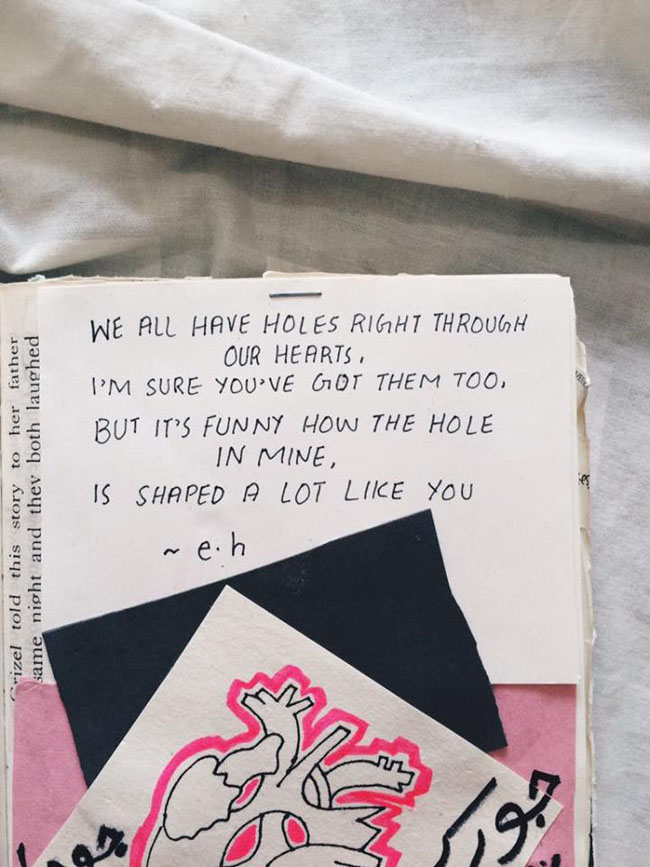 WE ALL HAVE HOLES RIGHT THROUGH
OUR HEARTS.
I'M SURE YOU'VE GOT THEM TOO.
BUT IT'S FUNNY HOW THE HOLE
IN MINE,
IS SHAPED A LOT LIKE YOU
~ e.h
Grizel told this story to her father
same night and they both laughed